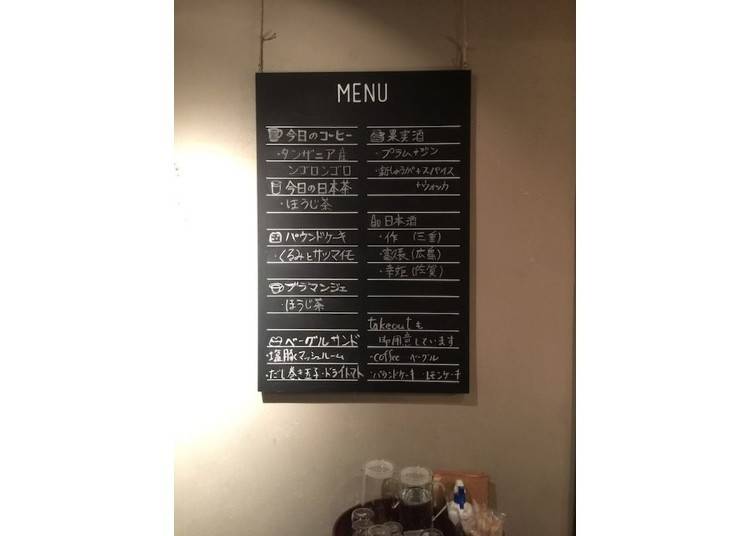 MENU
今日のコーヒー
・タンザニア産
ンゴロンゴロ
今日の日本茶
・ほうじ茶
パウンドケーキ
・くるみとサツマイモ
ブラマンジェ
・ほうじ茶
ベーグルサンド
・塩豚マッシュルーム
・だし巻き玉子・ドライトマト
果実酒
・プラム+ジン
・新しょうが+スパイス
+ウォッカ
日本酒
・作 (三重)
・富久長 (広島)
・幸姫 (佐賀)
takeoutも
御用意しています
・coffee ・ベーグル
・パウンドケーキ ・レモンケーキ